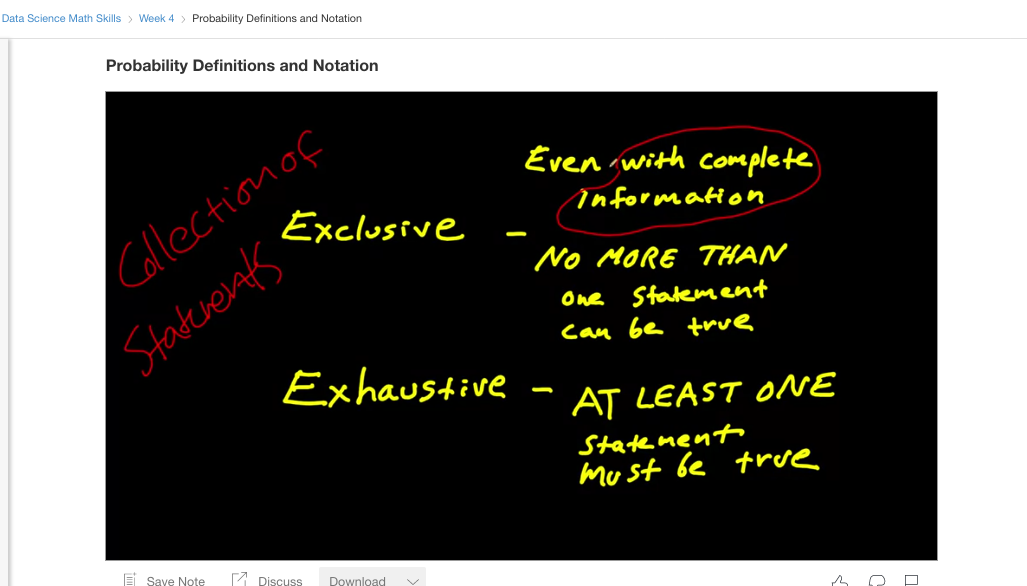 Data Science Math Skills > Week 4 > Probability Definitions and Notation
Probability Definitions and Notation
Collection of
Statements
Even with complete
Information
Exclusive –
NO MORE THAN
one statement
can be true
Exhaustive – AT LEAST ONE
statement
must be true
Save Note Discuss Download